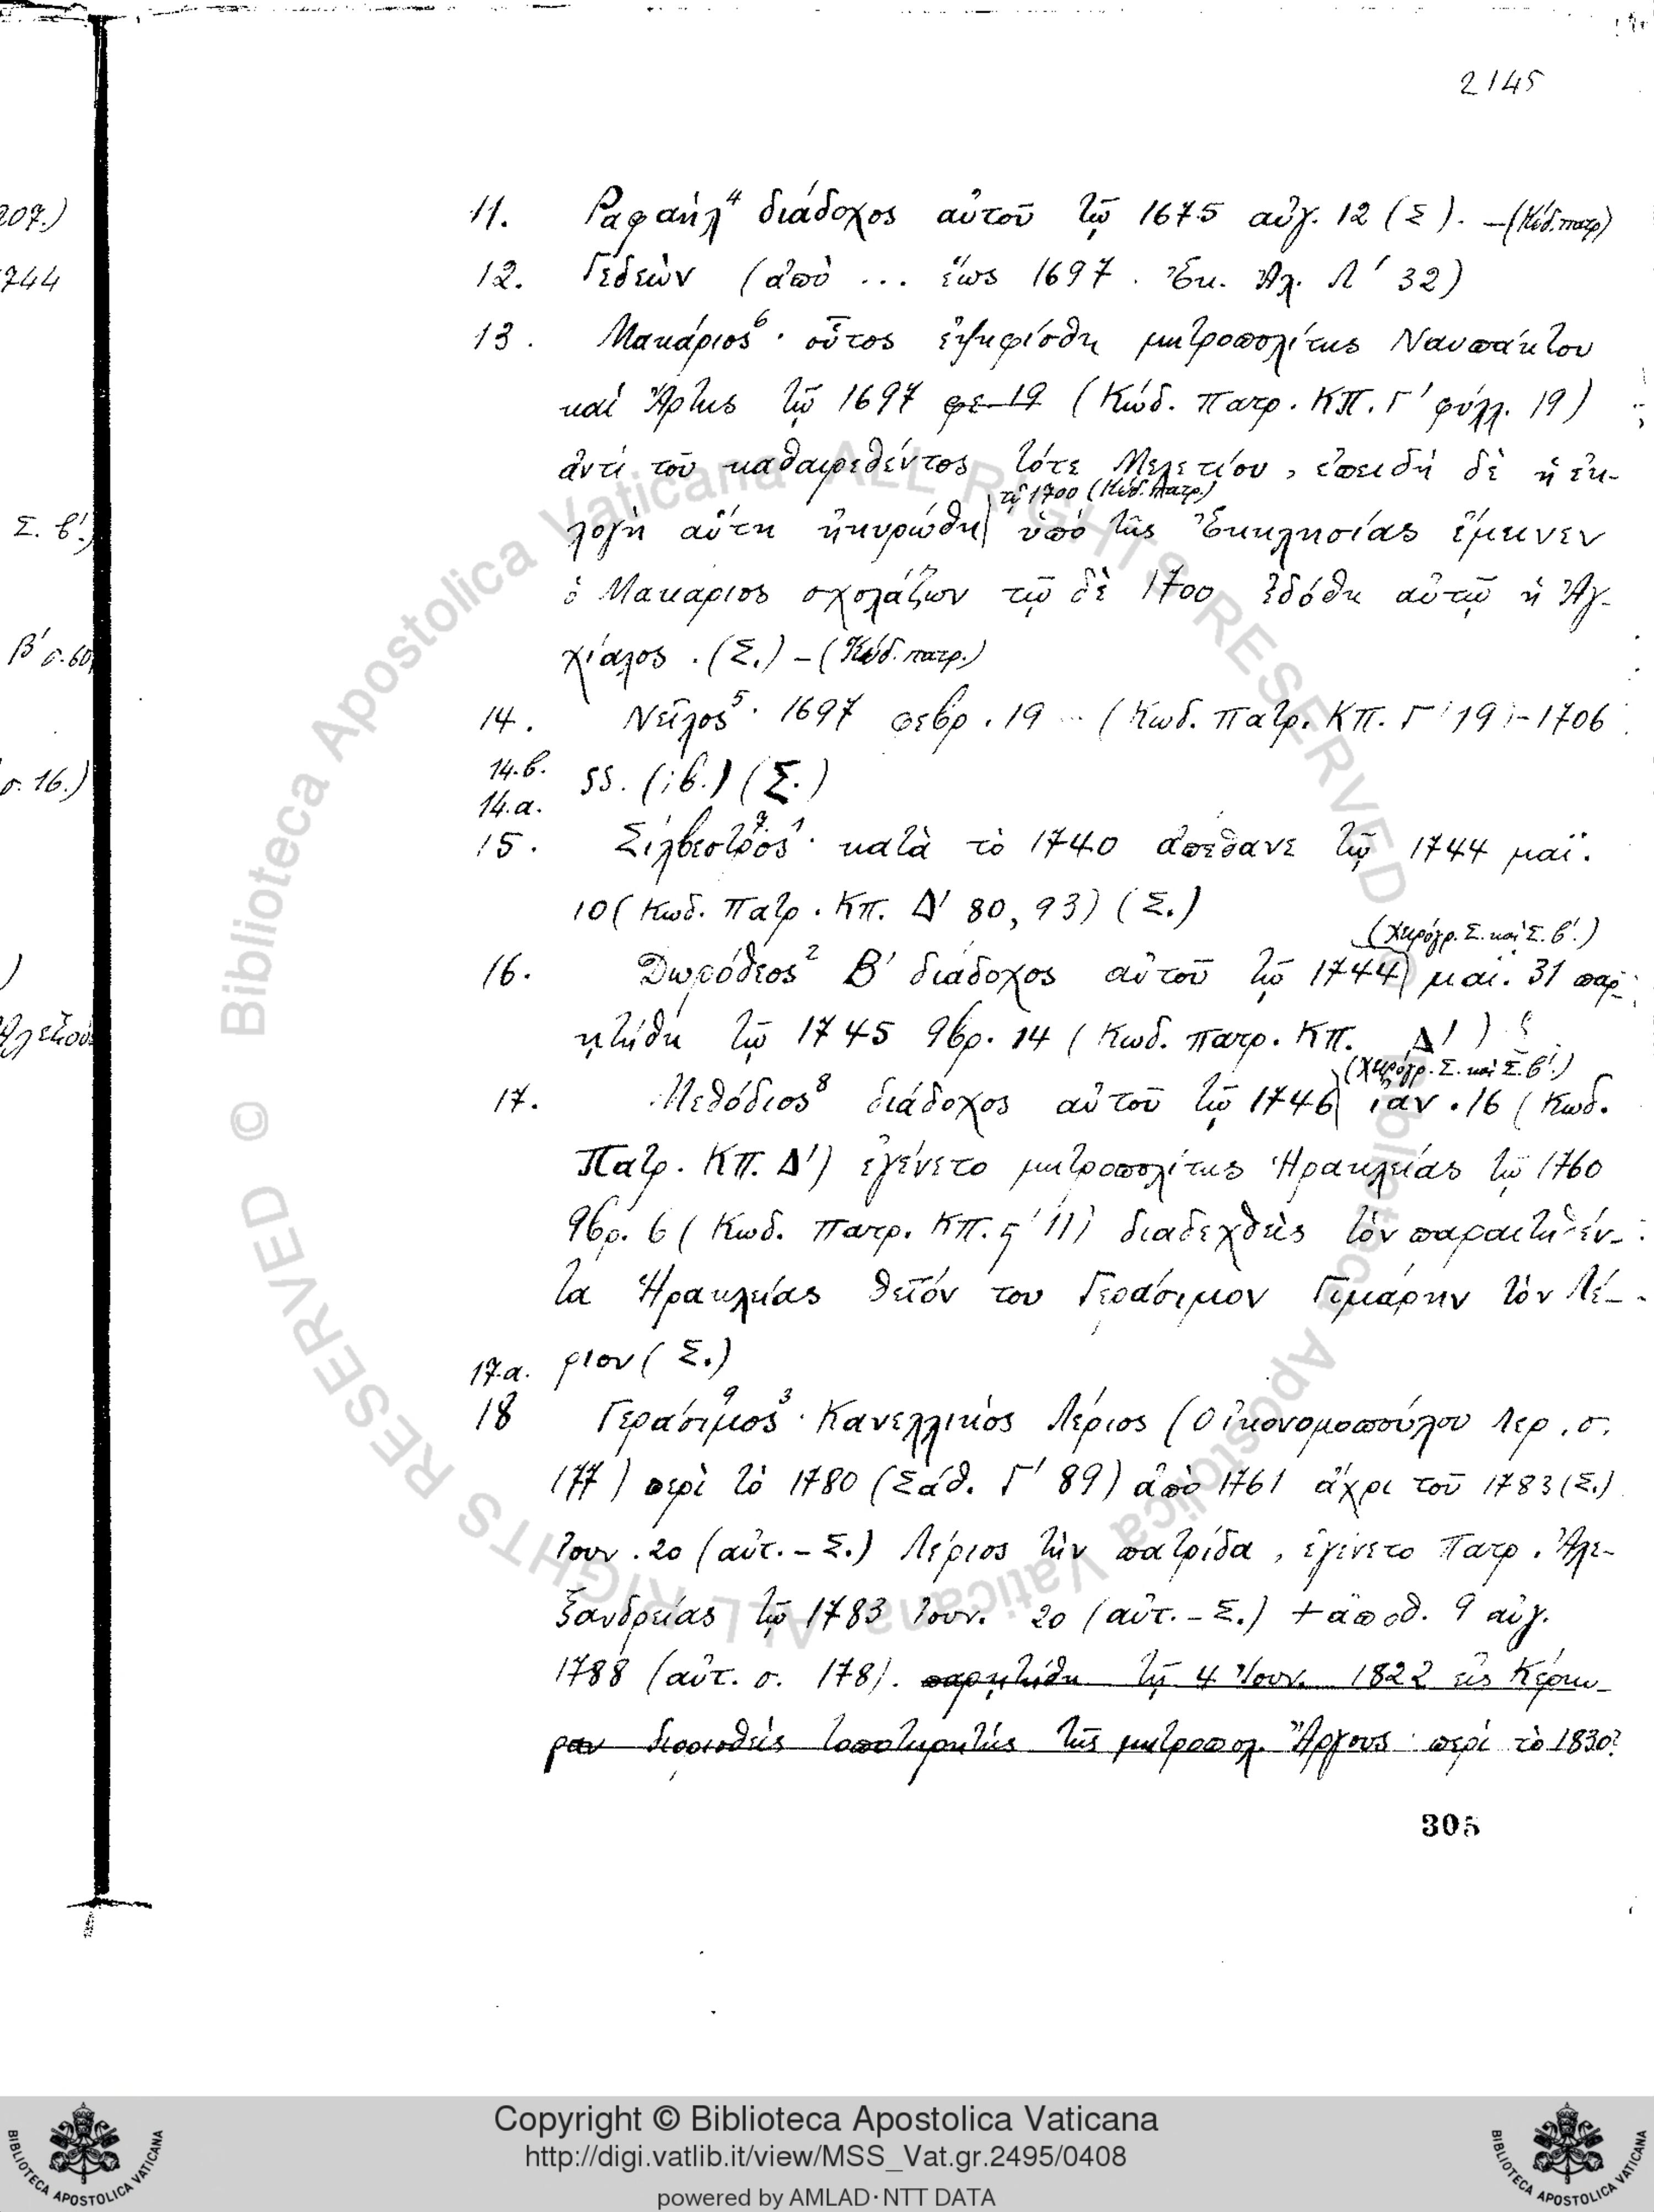 2145
207.)
744
Σ. β'.)
β' σ. 60
σ. 16.)
)
11. Ραφαήλ⁴ διάδοχος αὐτοῦ τῷ 1675 αὐγ. 12 (Σ). – (Κώδ. πατρ)
12. Γεδεὼν (ἀπὸ ... ἕως 1697. Ἐκ. Ἀλ. Λ' 32)
13. Μακάριος⁶· οὗτος ἐψηφίσθη μητροπολίτης Ναυπάκτου
καὶ Ἄρτης τῷ 1697 φε 19 (Κώδ. Πατρ. ΚΠ. Γ' φύλλ. 19)
ἀντὶ τοῦ καθαιρεθέντος τότε Μελετίου, ἐπειδὴ δὲ ἡ ἐκ-
τῷ 1700 (Κώδ. Πατρ.)
λογὴ αὕτη ἠκυρώθη ὑπὸ τῆς Ἐκκλησίας ἔμεινεν
ὁ Μακαριος σχολάζων τῷ δὲ 1700 ἐδόθη αὐτῷ ἡ Ἀγ-
χίαλος. (Σ.) – (Κώδ. πατρ.)
14. Νεῖλος⁵· 1697 φεβρ. 19 – (Κωδ. Πατρ. ΚΠ. Γ' 19) – 1706
14.β. SS. (ἰβ.) (Σ.)
14.α.
15. Σίλβεστρος⁷ ¹· κατὰ τὸ 1740 ἀπέθανε τῷ 1744 μαϊ.
10 (Κωδ. Πατρ. Κπ. Δ' 80, 93) (Σ.)
(Χειρόγρ. Σ. καὶ Σ. β'.)
16. Δωρόθεος² Β' διάδοχος αὐτοῦ τῷ 1744 μαϊ. 31 παρ-
ῃτήθη τῷ 1745 9βρ. 14 (Κωδ. πατρ. ΚΠ. Δ')
(Χειρόγρ. Σ. καὶ Σ. β'.)
17. Μεθόδιος⁸ διάδοχος αὐτοῦ τῷ 1746 ἰαν. 16 (Κωδ.
Πατρ. ΚΠ. Δ') ἐγένετο μητροπολίτης Ἡρακλείας τῷ 1760
9βρ. 6 (Κωδ. Πατρ. ΚΠ. ϛ' 11) διαδεχθεὶς τὸν παραιτηθέν-
τα Ἡρακλείας θεῖόν του Γεράσιμον Γιμάρην τὸν Λέ-
17.α. ριον (Σ.)
18 Γεράσιμος⁹ ³· Κανελλικὸς Λέριος (Οἰκονομοπούλου Λερ. σ.
177) περὶ τὸ 1780 (Σάθ. Γ' 89) ἀπὸ 1761 ἄχρι τοῦ 1783 (Σ.)
Ιουν. 20 (αὐτ. – Σ.) Λέριος τὴν πατρίδα, ἐγένετο Πατρ. Ἀλε-
ξανδρείας τῷ 1783 Ιουν. 20 (αὐτ. – Σ.) + ἀποθ. 9 αὐγ.
1788 (αὐτ. σ. 178). παρῃτήθη τῇ 4 Ἰουν. 1822 εἰς Κέρκυ-
ραν διορισθεὶς τοποτηρητὴς τῆς μητροπολ. Ἄργους περὶ τὸ 1830?
305
© Biblioteca Apostolica Vaticana ALL RIGHTS RESERVED
© Biblioteca Apostolica Vaticana ALL RIGHTS RESERVED
Copyright © Biblioteca Apostolica Vaticana
http://digi.vatlib.it/view/MSS_Vat.gr.2495/0408
powered by AMLAD·NTT DATA
BIBLIOTECA APOSTOLICA VATICANA
BIBLIOTECA APOSTOLICA VATICANA